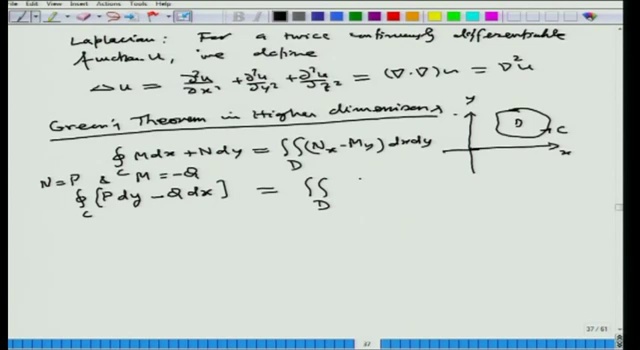 File Edit View Insert Actions Tools Help
Laplacian: For a twice continuously differentiable
function u, we define
Δu = ∂²u/∂x² + ∂²u/∂y² + ∂²u/∂z² = (∇·∇)u = ∇²u
Green's Theorem in Higher dimensions.
∮_C Mdx + Ndy = ∬_D (N_x - M_y) dxdy
y D C x
N = P & M = -Q
∮_C [P dy - Q dx] = ∬_D
37 / 61
37